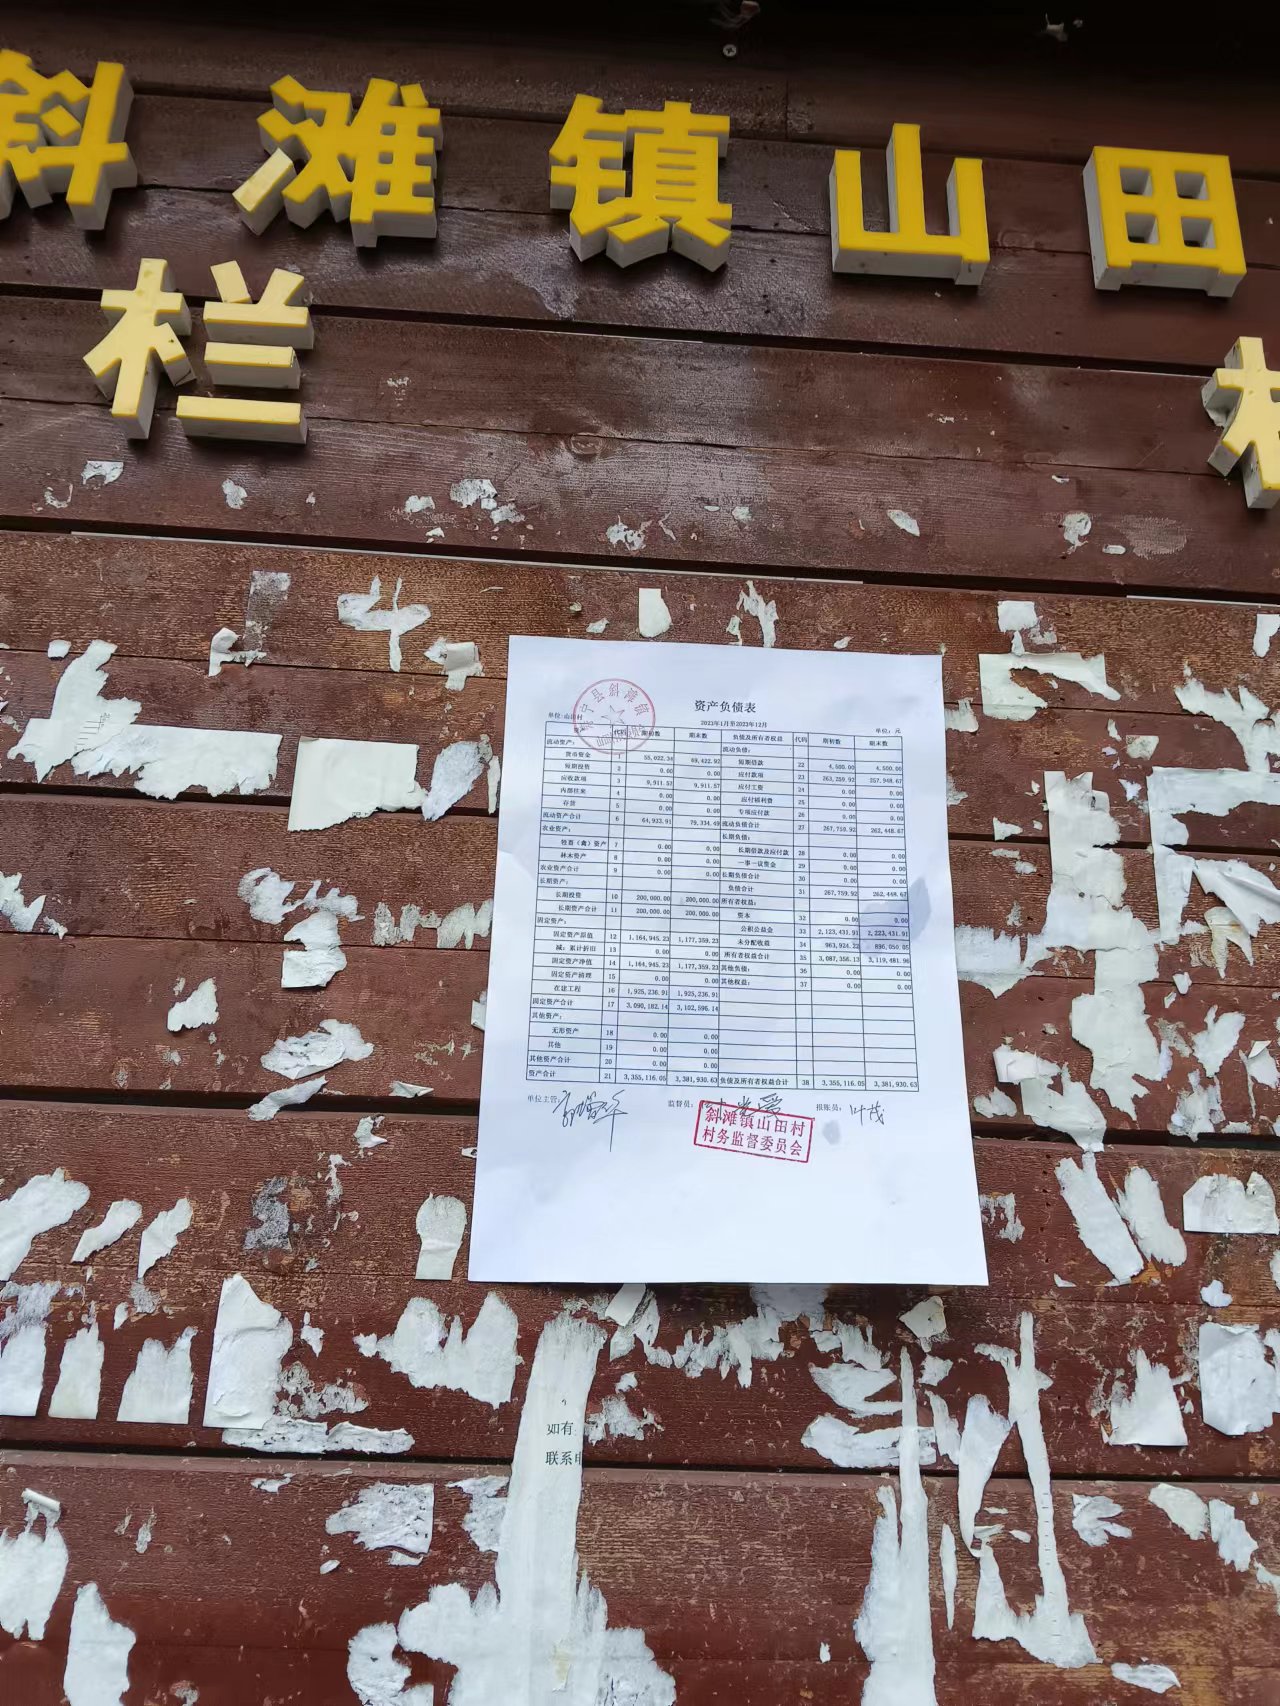 斜滩镇山田
栏
资产负债表
单位:山田村 2023年1月至2023年12月 单位:元
代码 期初数 期末数 负债及所有者权益 代码 期初数 期末数
流动资产: 流动负债:
货币资金 1 55,022.34 69,422.92 短期借款 22 4,500.00 4,500.00
短期投资 2 0.00 0.00 应付款项 23 263,259.92 257,948.67
应收款项 3 9,911.57 9,911.57 应付工资 24 0.00 0.00
内部往来 4 0.00 0.00 应付福利费 25 0.00 0.00
存货 5 0.00 0.00 专项应付款 26 0.00 0.00
流动资产合计 6 64,933.91 79,334.49 流动负债合计 27 267,759.92 262,448.67
农业资产: 长期负债:
牲畜(禽)资产 7 0.00 0.00 长期借款及应付款 28 0.00 0.00
林木资产 8 0.00 0.00 一事一议资金 29 0.00 0.00
农业资产合计 9 0.00 0.00 长期负债合计 30 0.00 0.00
长期资产: 负债合计 31 267,759.92 262,448.67
长期投资 10 200,000.00 200,000.00 所有者权益:
长期资产合计 11 200,000.00 200,000.00 资本 32 0.00 0.00
固定资产: 公积公益金 33 2,123,431.91 2,223,431.91
固定资产原值 12 1,164,945.23 1,177,359.23 未分配收益 34 963,924.22 896,050.05
减:累计折旧 13 0.00 0.00 所有者权益合计 35 3,087,356.13 3,119,481.96
固定资产净值 14 1,164,945.23 1,177,359.23 其他负债: 36 0.00 0.00
固定资产清理 15 0.00 0.00 其他权益: 37 0.00 0.00
在建工程 16 1,925,236.91 1,925,236.91
固定资产合计 17 3,090,182.14 3,102,596.14
其他资产:
无形资产 18 0.00 0.00
其他 19 0.00 0.00
其他资产合计 20 0.00 0.00
资产合计 21 3,355,116.05 3,381,930.63 负债及所有者权益合计 38 3,355,116.05 3,381,930.63
单位主管: 监督员: 报账员: 叶茂
斜滩镇山田村
村务监督委员会
如有
联系